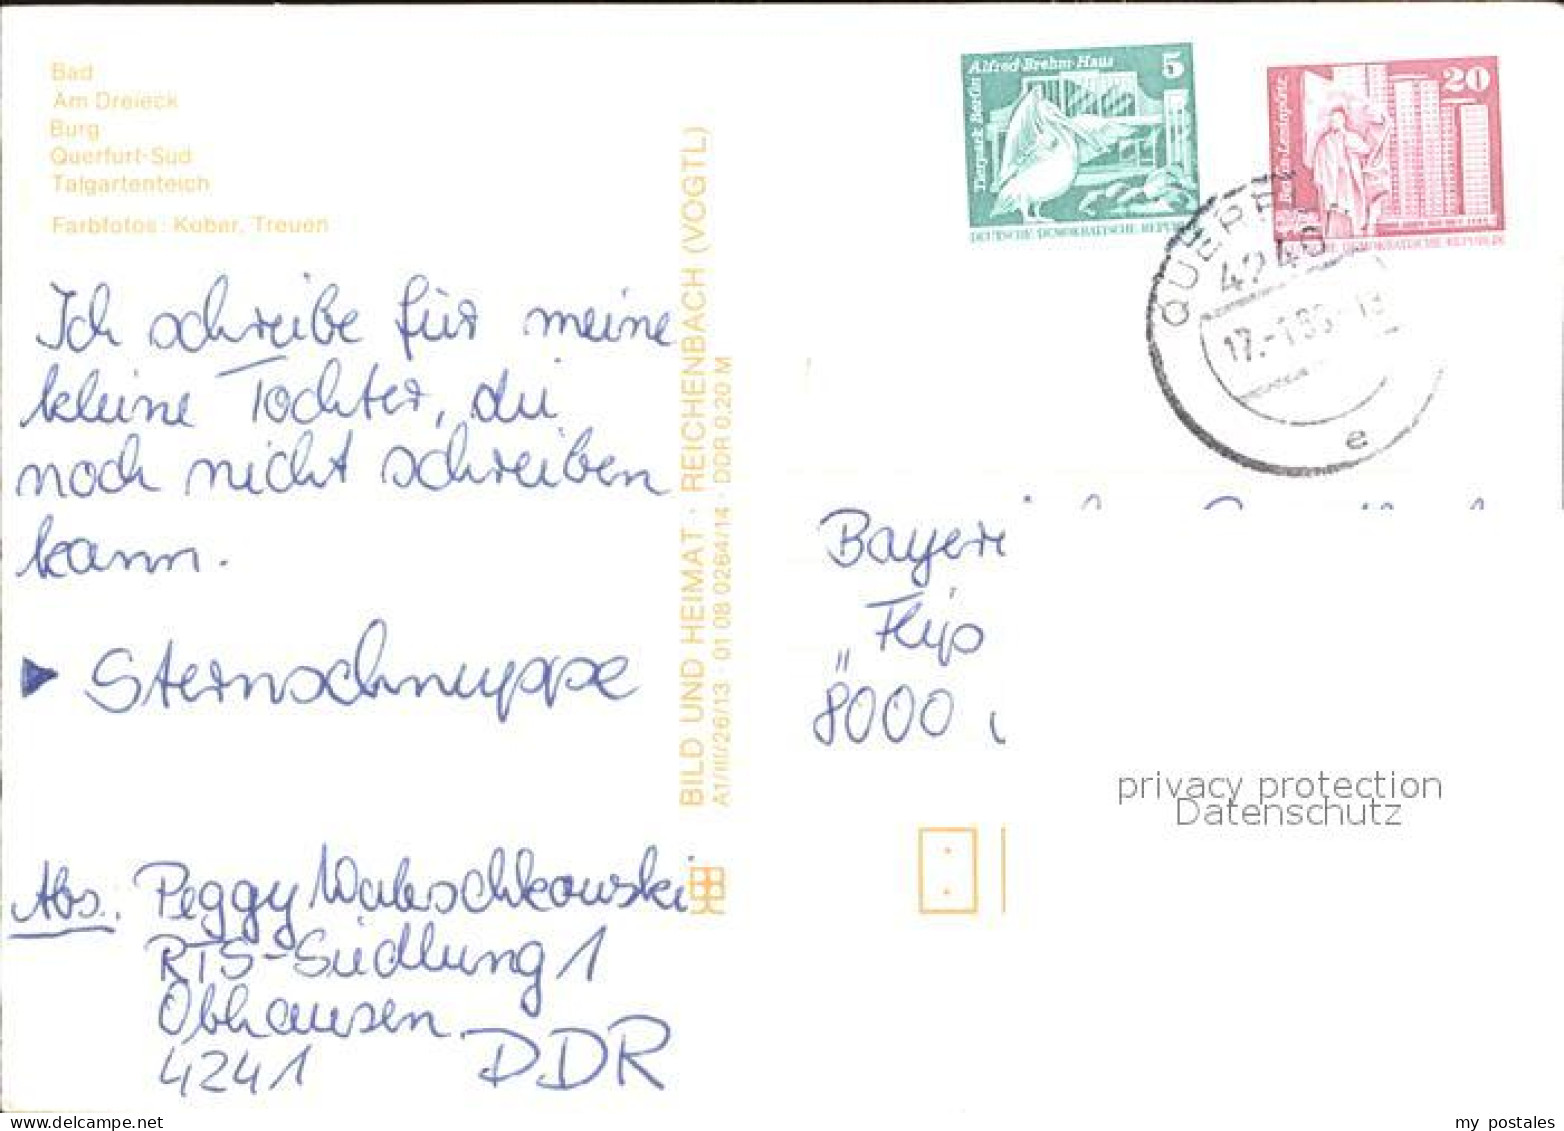 Bad
Am Dreieck
Burg
Querfurt-Süd
Talgartenteich
Farbfotos: Kober, Treuen
Ich schreibe für meine
kleine Tochter, die
noch nicht schreiben
kann.
Sternschnuppe
Abs. Peggy Waleschkowski
RTS-Siedlung 1
Obhausen
4241 DDR
BILD UND HEIMAT · REICHENBACH (VOGTL.)
A1/III/26/13 · 01 08 0264/14 · DDR 0,20 M
Alfred-Brehm-Haus 5
Tierpark Berlin
DEUTSCHE DEMOKRATISCHE REPUB
20
Berlin-Leninplatz
DEMOKRATISCHE REPUBLIK
QUERF
4240
e
Bayer
„Flip
8000
privacy protection
Datenschutz
my postales